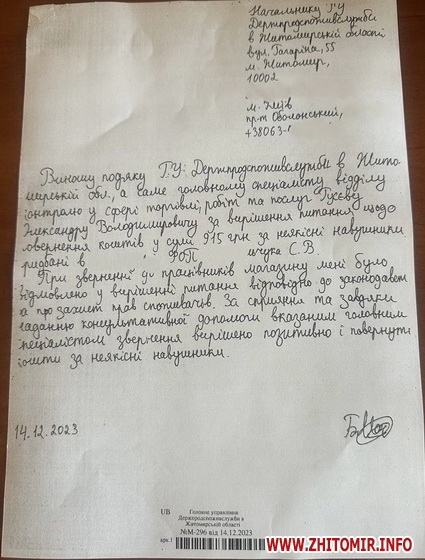 Начальнику ГУ
Держпродспоживслужби
в Житомирській області
вул. Гагаріна, 55
м. Житомир,
10002
м. Київ
пр-т Оболонський,
+38063-
Виношу подяку ГУ Держпродспоживслужби в Жито-
мирській обл., а саме головному спеціалісту відділу
контролю у сфері торгівлі, робіт та послуг Гусєву
Олександру Володимировичу за вирішення питання щодо
повернення коштів у сумі 915 грн за неякісні навушники
придбані в ФОП щука С.В.
При зверненні до працівників магазину мені було
відмовлено у вирішенні питання відповідно до законодавст
а про захист прав споживачів. За сприяння та завдяки
наданню консультативної допомоги вказаним головним
спеціалістом звернення вирішено позитивно і повернуто
кошти за неякісні навушники.
14.12.2023
UB Головне управління
Держпродспоживслужби в
Житомирській області
№М-296 від 14.12.2023
арк.1
WWW.ZHITOMIR.INFO